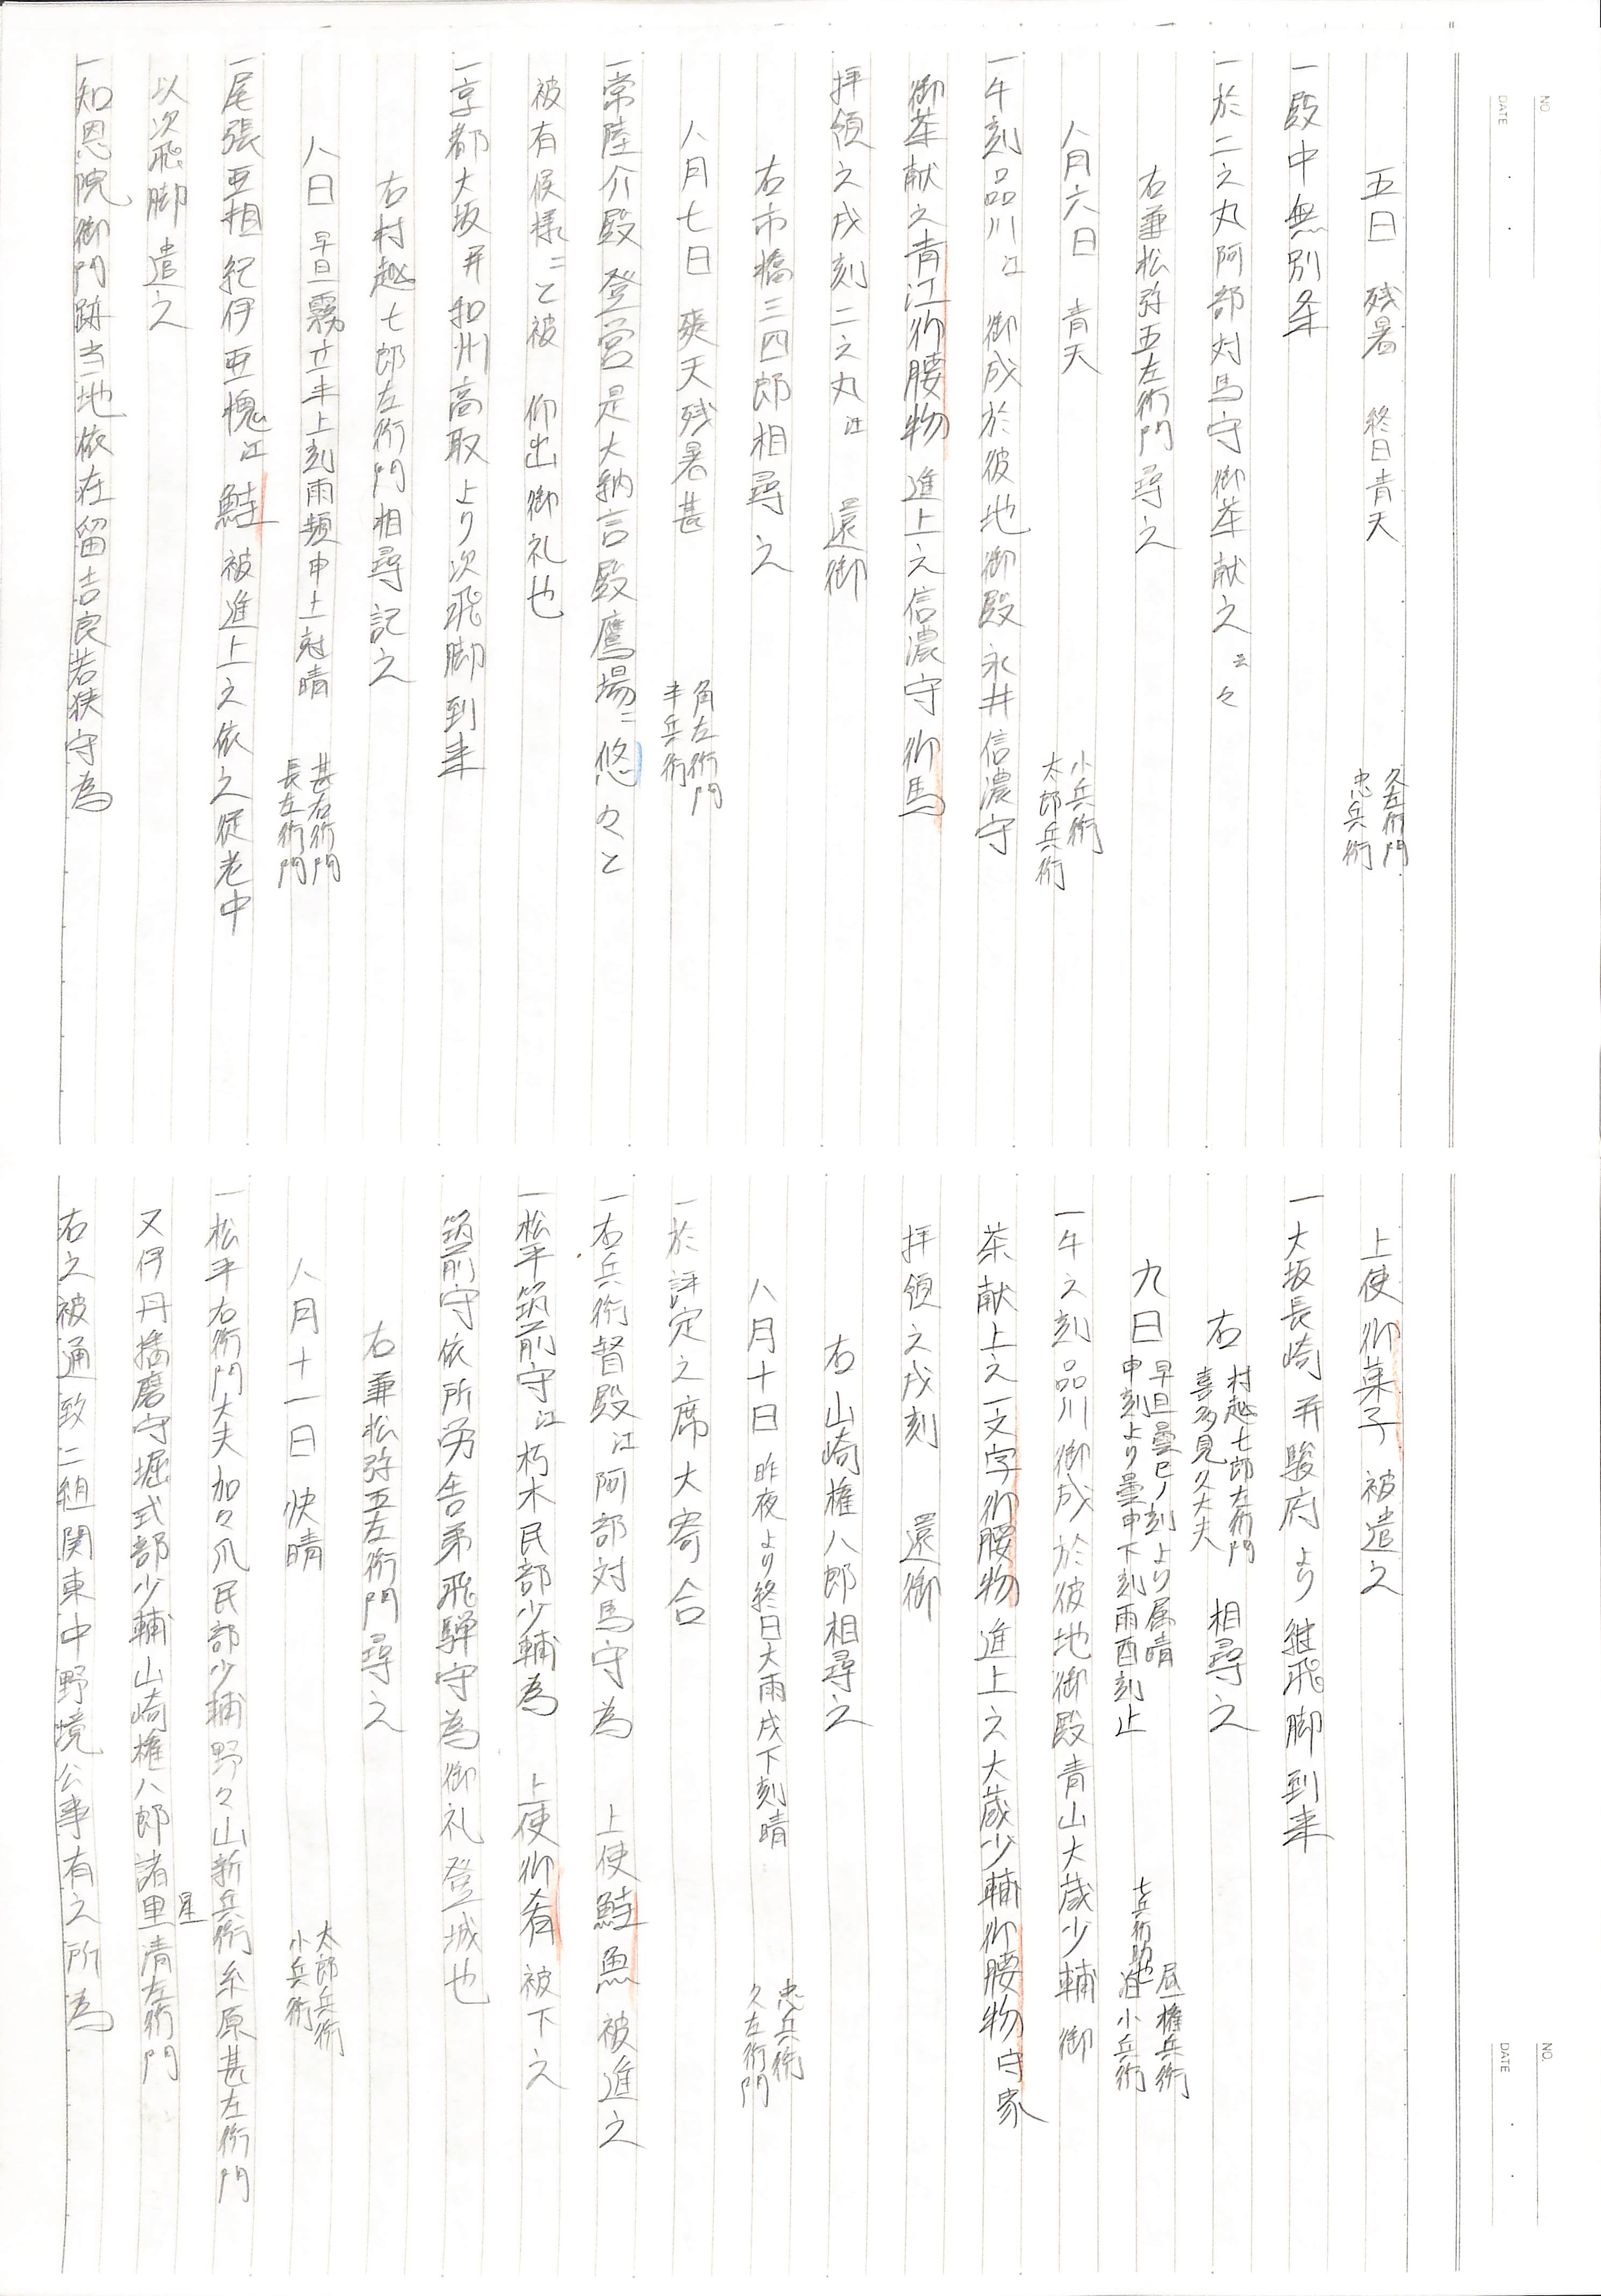 NO
DATE
五日　残暑　終日青天　久左衛門　忠兵衛
一殿中無別条
一於二之丸阿部対馬守御茶献之云々
右兼松弥五左衛門尋之
八月六日　青天　小兵衛　太郎兵衛
一午刻品川江　御成於彼地御殿永井信濃守
御茶献之青江御腰物進上之信濃守御馬
拝領之戌刻二之丸江　還御
右市橋三四郎相尋之
八月七日　爽天残暑甚　角左衛門　半兵衛
一常陸介殿登営是大納言殿鷹場ニ悠々と
被有候様ニと被　仰出御礼也
一京都大坂并和州高取より次飛脚到来
右村越七郎左衛門相尋記之
八日　早旦霧立半上刻雨頻申上刻晴　甚右衛門　長左衛門
一尾張亜相紀伊亜槐江鮭被進上之依之従老中
以次飛脚遣之
一知恩院御門跡当地依在留吉良若狭守為
NO.
DATE
上使御菓子被遣之
一大坂長崎并駿府より継飛脚到来
右　村越七郎左衛門　喜多見久大夫　相尋之
九日　早旦曇巳ノ刻より属晴　申刻より曇申下刻雨酉刻止　昼権兵衛　七兵衛　泊小兵衛
一午之刻品川御成於彼地御殿青山大蔵少輔御
茶献上之一文字御腰物進上之大蔵少輔御腰物守家
拝領之戌刻　還御
右山崎権八郎相尋之
八月十日　昨夜より終日大雨戌下刻晴　忠兵衛　久左衛門
一於評定之席大寄合
一右兵衛督殿江阿部対馬守為　上使鮭魚被進之
一松平筑前守江朽木民部少輔為　上使御肴被下之
筑前守依所労舎弟飛騨守為御礼登城也
右兼松弥五左衛門尋之
八月十一日　快晴　太郎兵衛　小兵衛
一松平右衛門大夫加々爪民部少輔野々山新兵衛糸原甚左衛門
又伊丹播磨守堀式部少輔山崎権八郎諸里星清左衛門
右之被通致二組関東中野境公事有之所為